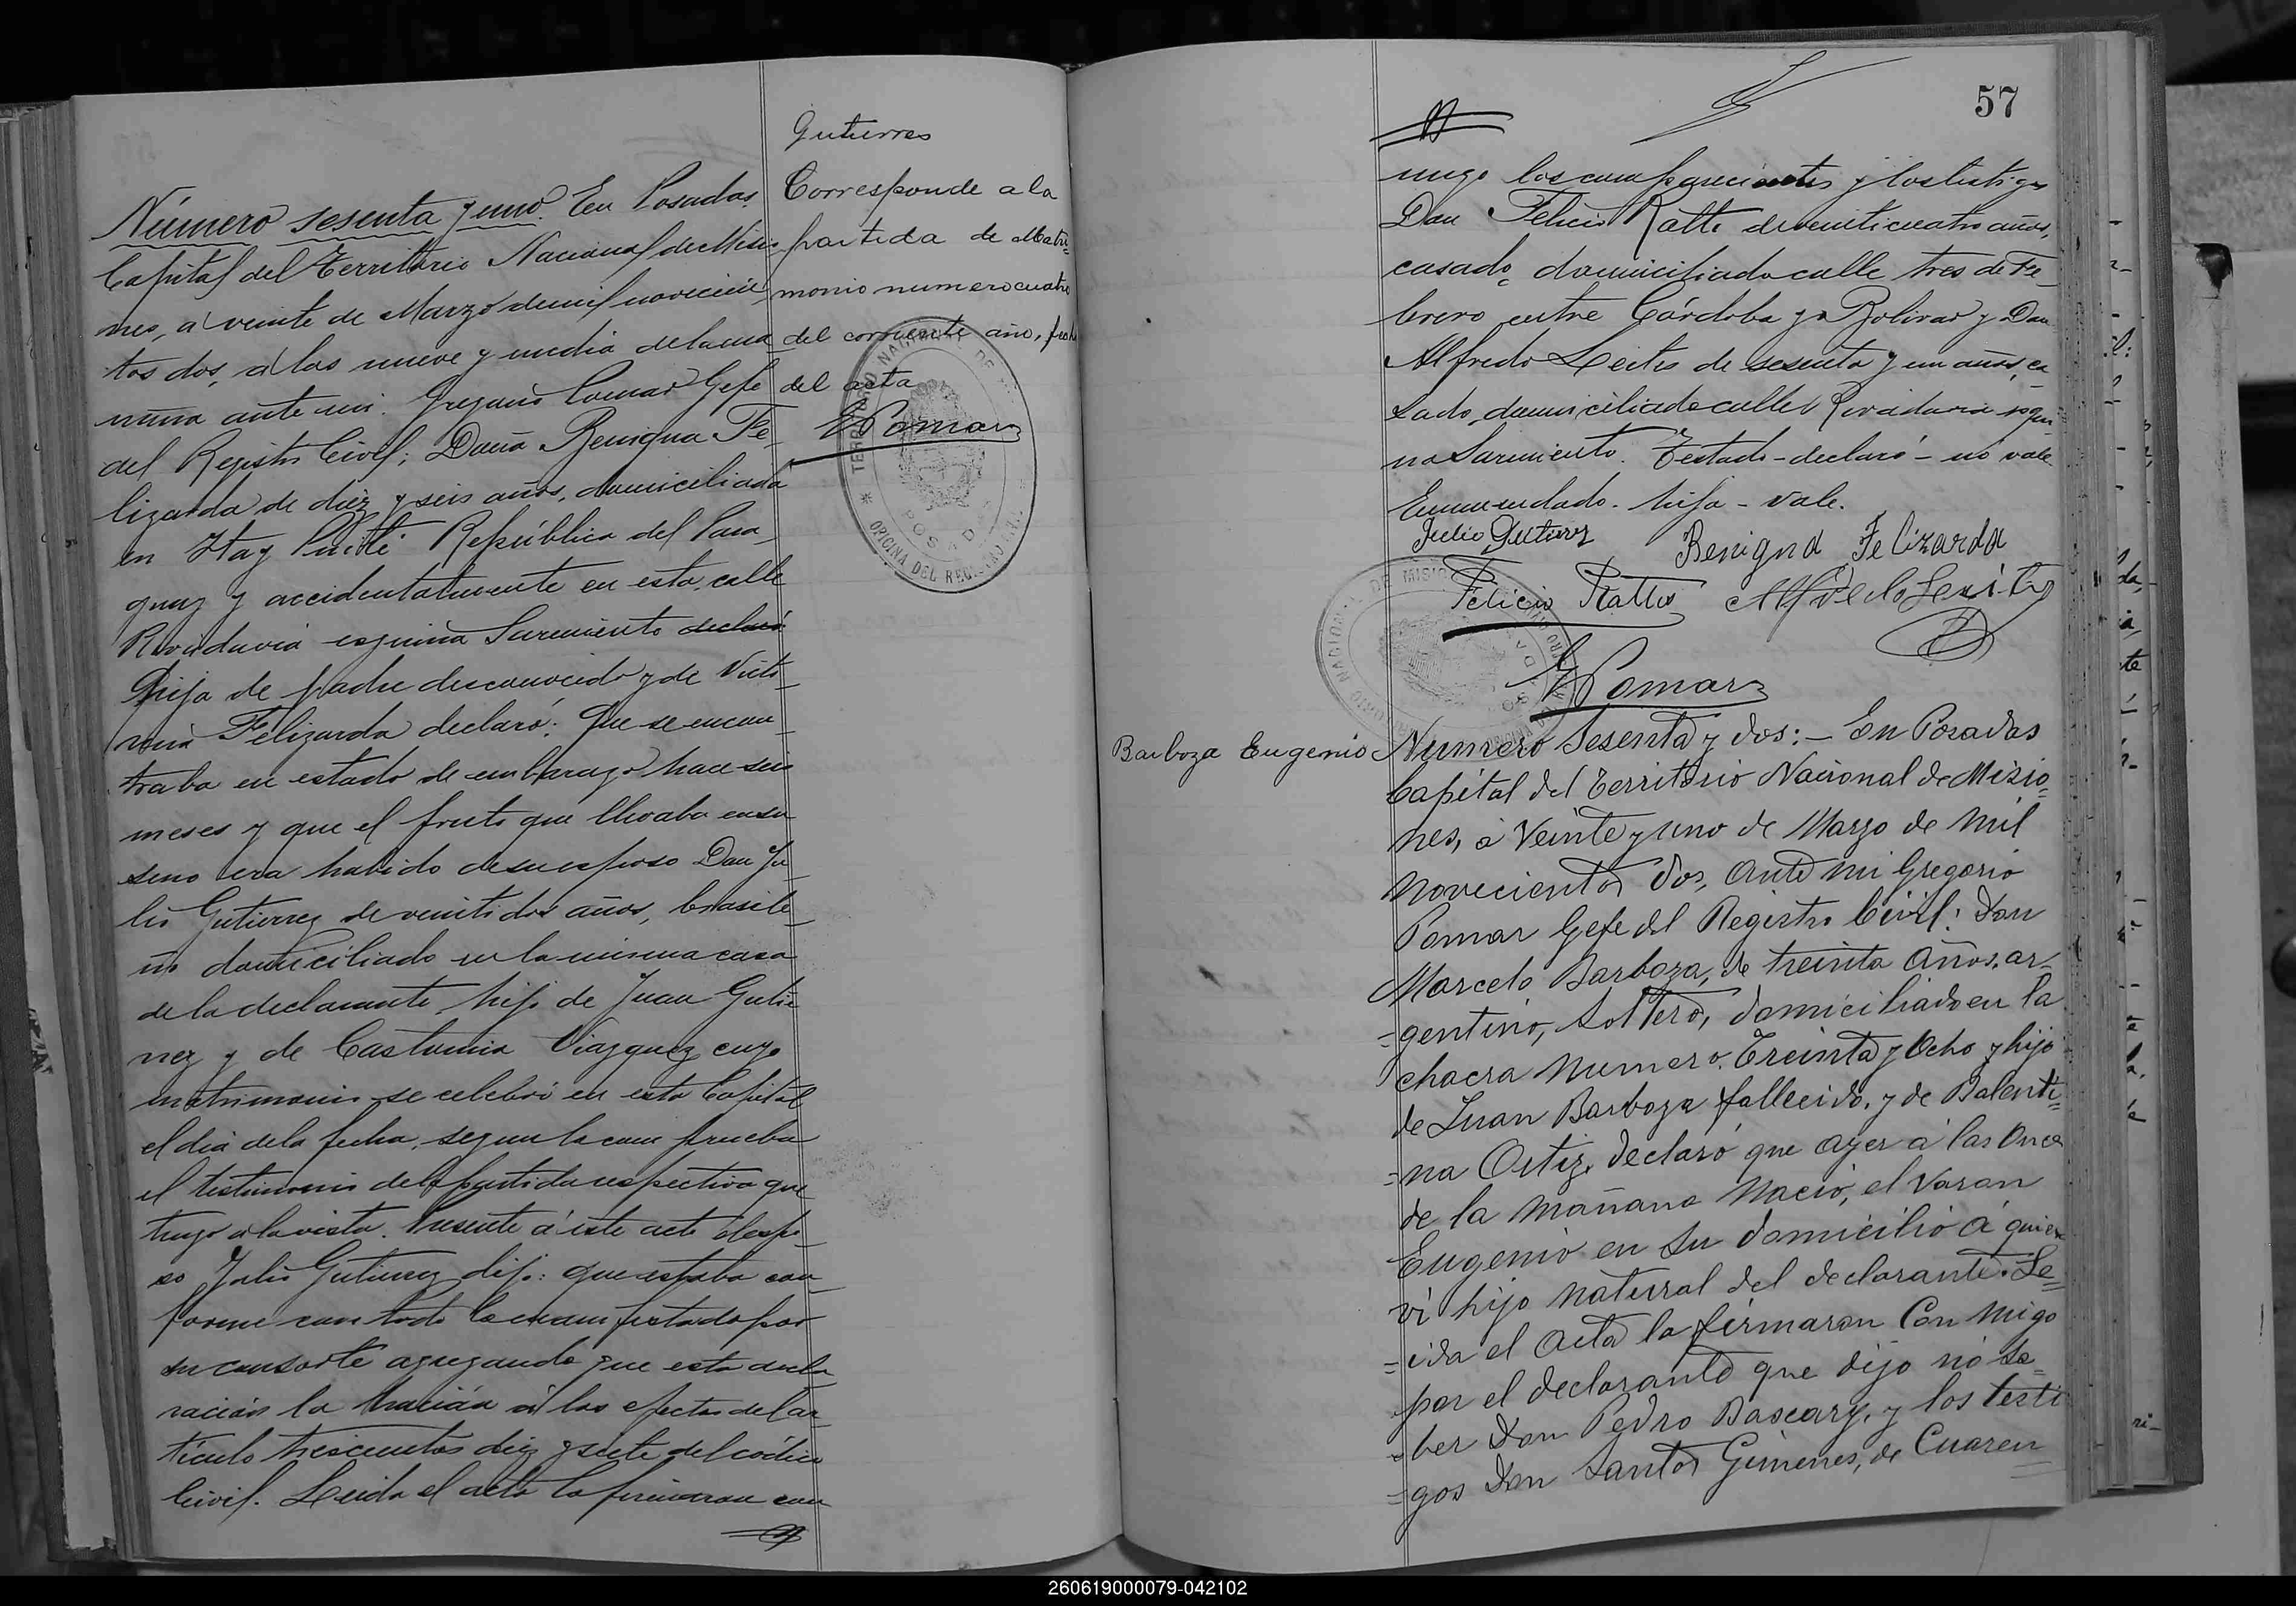 Número sesenta y uno. En Posadas
Capital del Territorio Nacional de Misio
nes, a veinte de Marzo de mil novecien
tos dos, a las nueve y media de la ma
ñana ante mi Gregorio Pomar Gefe
del Registro Civil; Doña Benigna Fe
lizarda de diez y seis años, domiciliada
en Itay República del Para
guay y accidentalmente en esta, calle
Rivadavia esquina Sarmiento declaró
hija de padre desconocido y de Victo
Felizarda declaró: Que se encon
traba en estado de embarazo hace seis
meses y que el fruto que llevaba en su
seno era habido de su esposo Don Ju
lio Gutierrez de veinte dos años, brasile
ño domiciliado en la misma casa
de la declarante, hijo de Juan Gutie
rrez y de Viazquez cuyo
matrimonio se celebró en esta Capital
el dia de la fecha, segun lo com prueba
el testimonio de la partida respectiva que
tengo a la vista. Presente á este acto el espo
so Julio Gutierrez dijo: que estaba con
forme con todo lo manifestado por
su consorte agregando que esta decla
ración la hacián á los efectos del ar
tículo trescientos diez y siete del codigo
Civil. Leida el acta la firmaron con
Gutierres
Corresponde a la
partida de Matri=
monio numero cuatro
del corriente año, fecha
del acta
GPomar
TERRITORIO NACIONAL DE
OFICINA DEL REGISTRO CIVIL
POSADAS
57
migo los comparecientes y los testigos
Don Felicio Ratto de veinticuatro años,
casado, domiciliado calle tres de Fe
brero entre Córdoba y Bolivar y Don
Alfredo Leites de sesenta y un años, ca
sado, domiciliado calle Rivadavia esqui
na Sarmiento. Testado - declaró - no vale.
Enmendado - hija - vale.
Julio Gutierrez
Benigna Felizarda
Felicio Ratto
Alfredo Leites
GPomar
Barboza Eugenio
Numero Sesenta y dos: - En Posadas
Capital del Territorio Nacional de Misio=
nes, á Veinte y uno de Marzo de mil
novecientos dos, ante mi Gregorio
Pomar Gefe del Registro Civil: Don
Marcelo Barboza, de treinta años, ar=
=gentino, soltero, domiciliado en la
chacra numero Treinta y Ocho y hijo
de Juan Barboza fallecido, y de Balenti=
=na Ortiz, declaró que ayer á las once
de la mañana Nació, el Varon
Eugenio en su domicilio á quien
vi hijo natural del declarante. Le=
=ida el acta la firmaron Con migo
por el declarante que dijo nó sa=
=ber Don Pedro Bascary, y los testi
=gos Don Santos Gimenes, de Cuaren
260619000079-042102